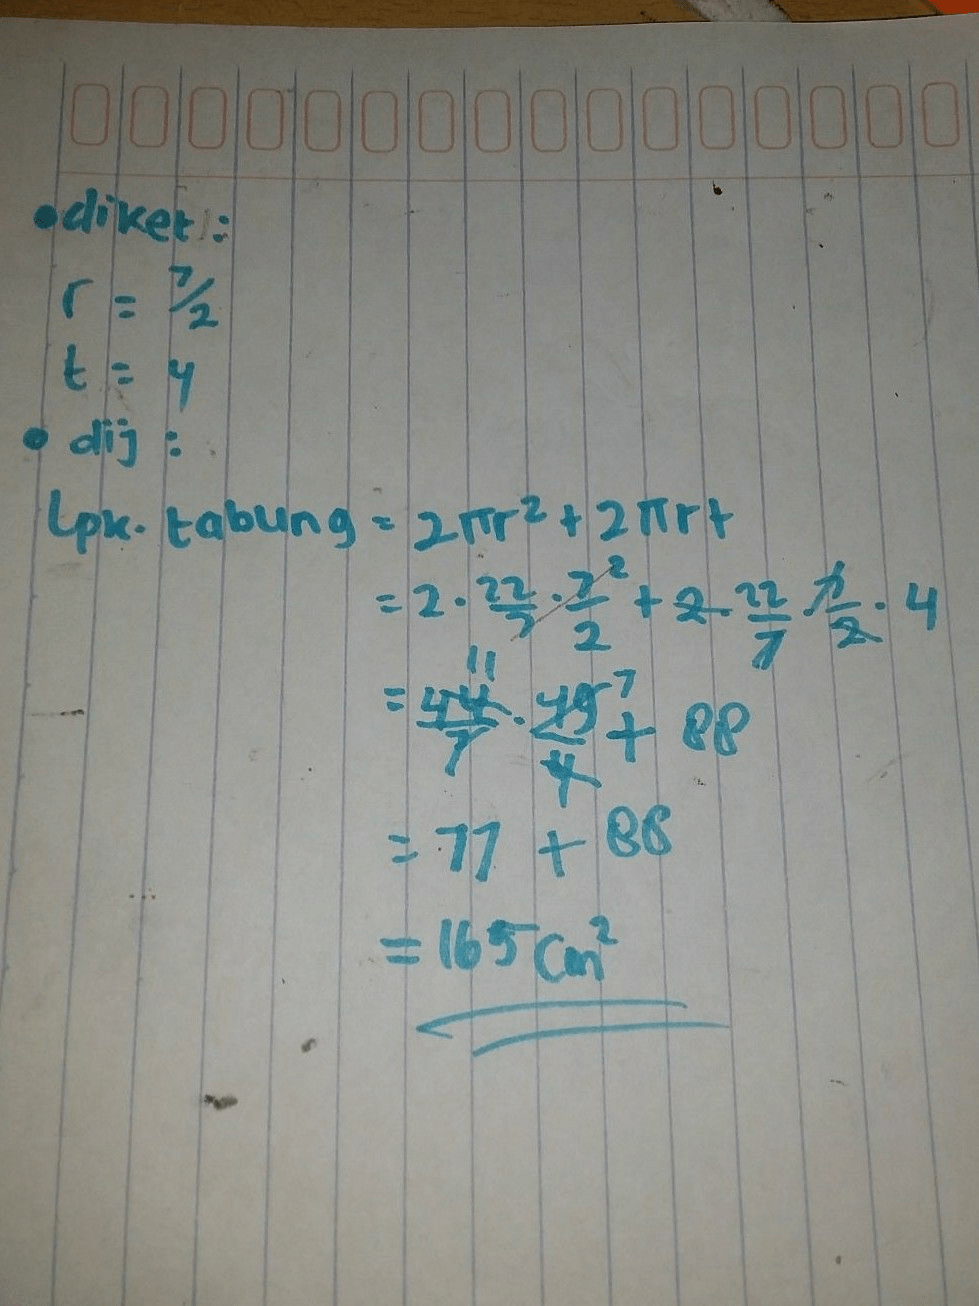 • diket :
r = 7/2
t = 4
• dij :
Lpk. tabung = 2πr² + 2πrt
= 2 · 22/7 · 7/2² + 2 · 22/7 · 7/2 · 4
= 44/7 11 · 49/4 7 + 88
= 77 + 88
= 165 cm²